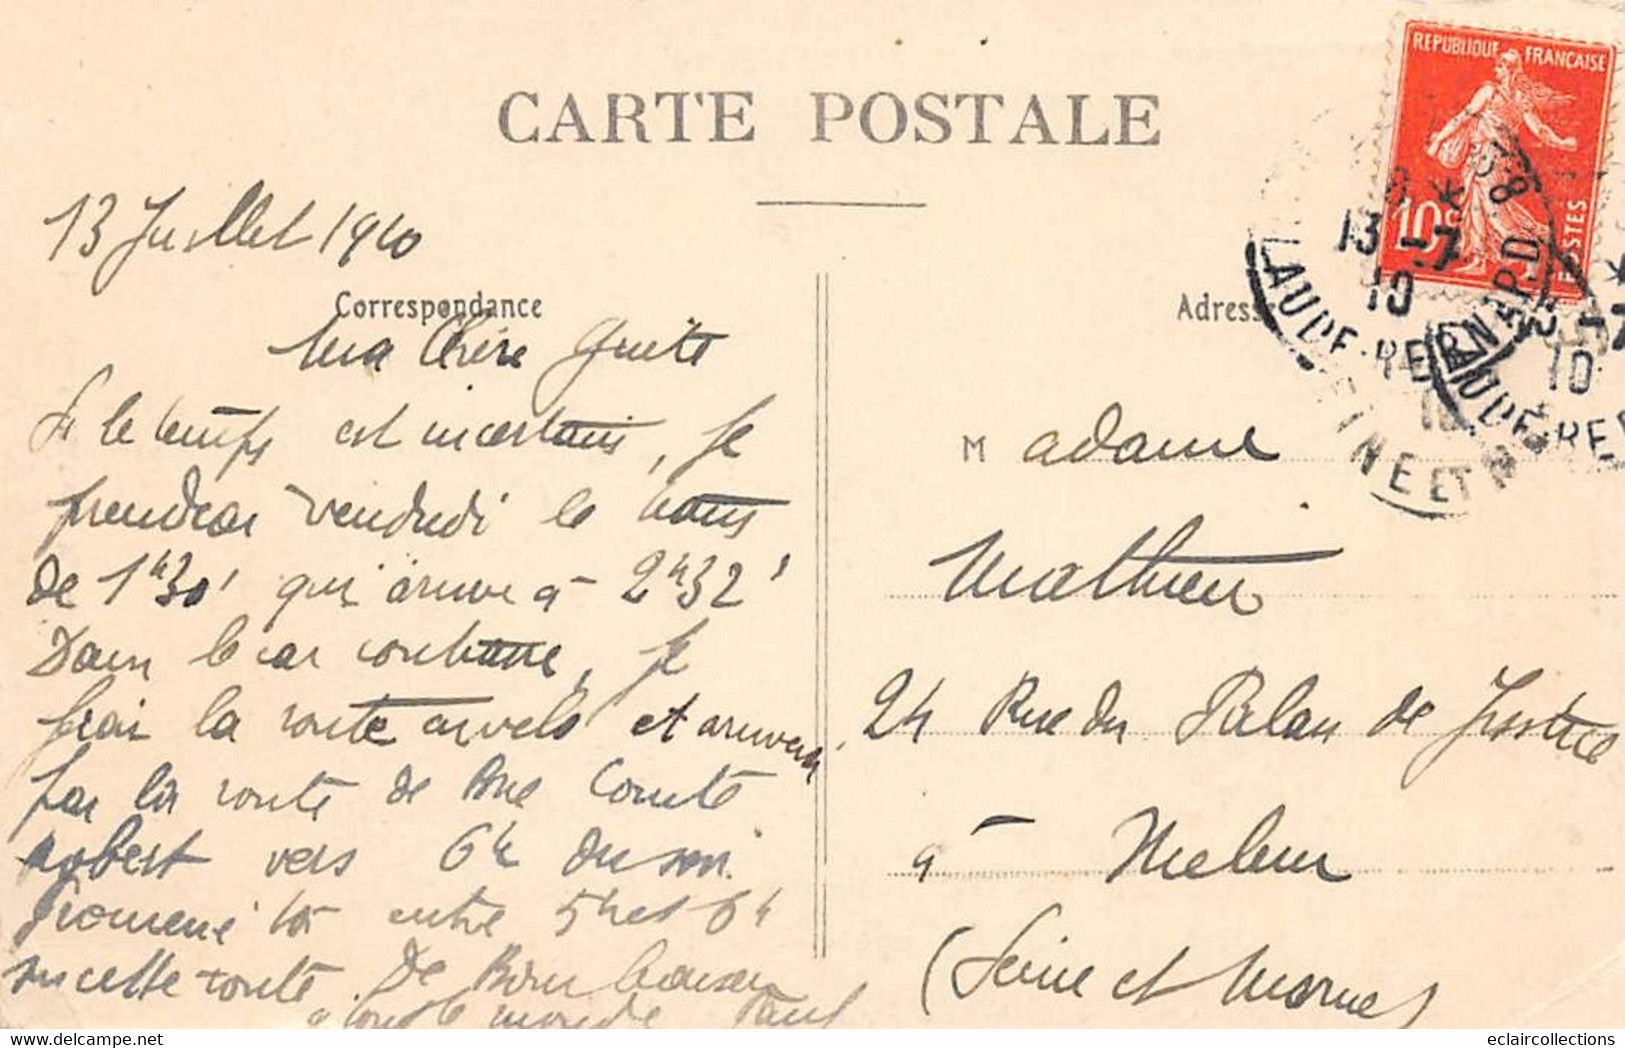 CARTE POSTALE
RÉPUBLIQUE FRANÇAISE
10c
POSTES
13 Juillet 1910
Correspondance
Ma Chère Guite
Si le temps est incertain, je
prendrai vendredi le train
de 1h30' qui arrive à 2h32'
Dans le cas contraire, je
ferai la route à vélo et arriverai
par la route de Brie Comte
Robert vers 6h du soir.
Promène toi entre 5h et 6h
sur cette route. De Bons baisers
à tout le monde Paul
Adresse
13 -7
10
LAUDE-RENARD
SEINE ET M
-7
10
AUDE-RE
Madame
Mathieu
24 Rue du Palais de Justice
à Melun
(Seine et Marne)
eclaircollections